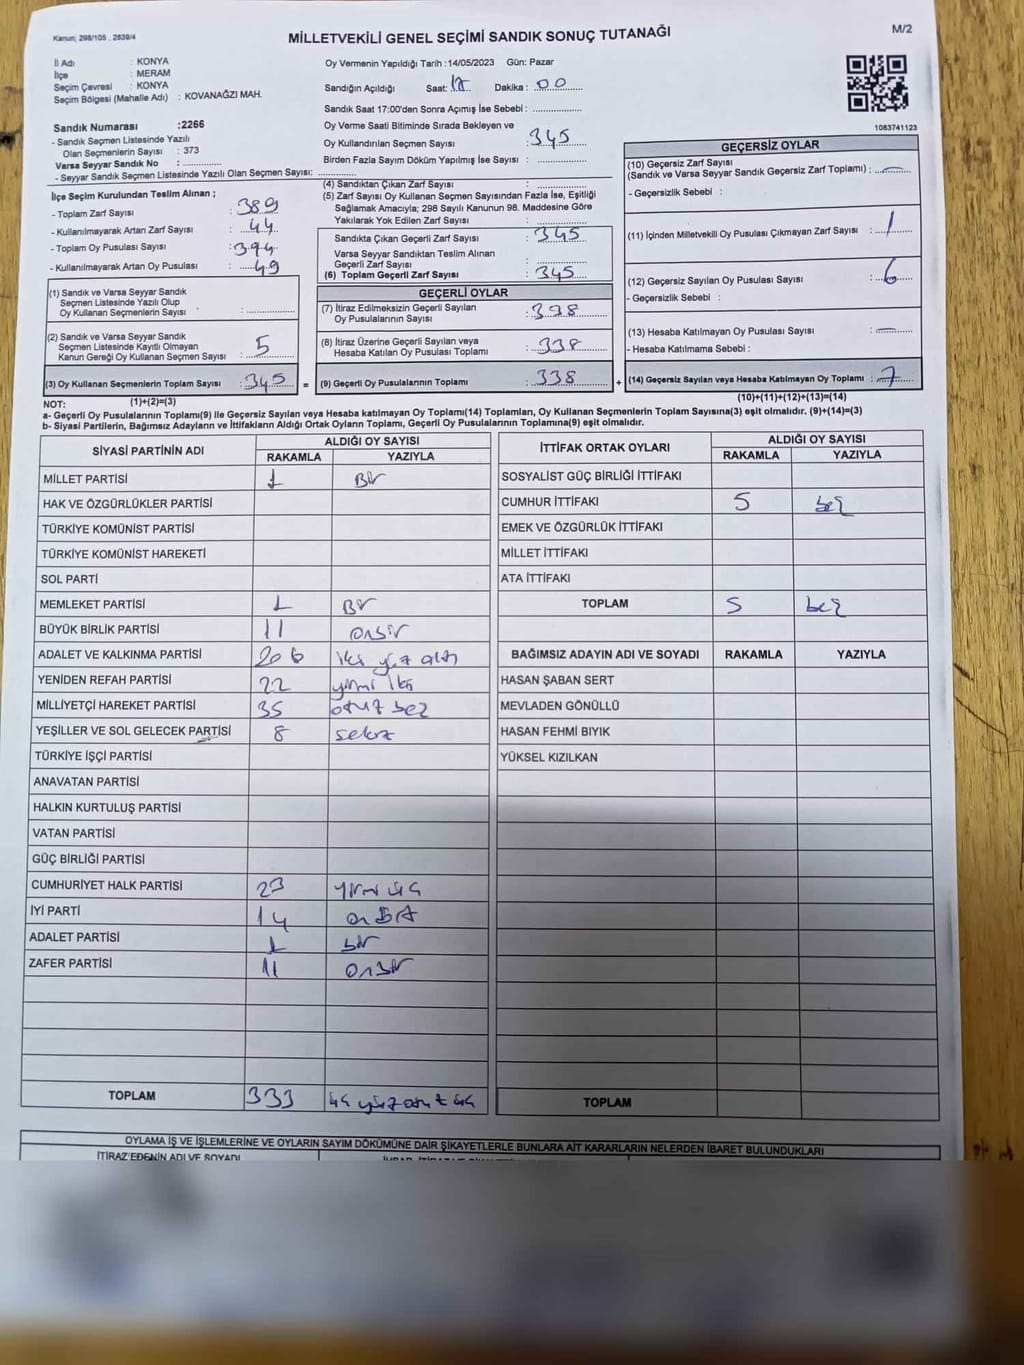 Kanun; 298/105 , 2839/4
MİLLETVEKİLİ GENEL SEÇİMİ SANDIK SONUÇ TUTANAĞI
M/2
İl Adı : KONYA
İlçe : MERAM
Seçim Çevresi : KONYA
Seçim Bölgesi (Mahalle Adı) : KOVANAĞZI MAH.
Oy Vermenin Yapıldığı Tarih :14/05/2023 Gün: Pazar
Sandığın Açıldığı Saat: 17 Dakika : 00
Sandık Saat 17:00'den Sonra Açımış İse Sebebi :
Oy Verme Saati Bitiminde Sırada Bekleyen ve
Oy Kullandırılan Seçmen Sayısı : 345
Birden Fazla Sayım Döküm Yapılmış İse Sayısı :
1083741123
Sandık Numarası :2266
- Sandık Seçmen Listesinde Yazılı
Olan Seçmenlerin Sayısı : 373
Varsa Seyyar Sandık No :
- Seyyar Sandık Seçmen Listesinde Yazılı Olan Seçmen Sayısı:
İlçe Seçim Kurulundan Teslim Alınan ;
- Toplam Zarf Sayısı : 389
- Kullanılmayarak Artan Zarf Sayısı : 44
- Toplam Oy Pusulası Sayısı : 394
- Kullanılmayarak Artan Oy Pusulası : 49
(1) Sandık ve Varsa Seyyar Sandık
Seçmen Listesinde Yazılı Olup
Oy Kullanan Seçmenlerin Sayısı :
(2) Sandık ve Varsa Seyyar Sandık
Seçmen Listesinde Kayıtlı Olmayan
Kanun Gereği Oy Kullanan Seçmen Sayısı : 5
(3) Oy Kullanan Seçmenlerin Toplam Sayısı : 345 =
(1)+(2)=(3)
(4) Sandıktan Çıkan Zarf Sayısı :
(5) Zarf Sayısı Oy Kullanan Seçmen Sayısından Fazla İse, Eşitliği
Sağlamak Amacıyla; 298 Sayılı Kanunun 98. Maddesine Göre
Yakılarak Yok Edilen Zarf Sayısı :
Sandıkta Çıkan Geçerli Zarf Sayısı : 345
Varsa Seyyar Sandıktan Teslim Alınan
Geçerli Zarf Sayısı :
(6) Toplam Geçerli Zarf Sayısı : 345
GEÇERLİ OYLAR
(7) İtiraz Edilmeksizin Geçerli Sayılan
Oy Pusulalarının Sayısı : 338
(8) İtiraz Üzerine Geçerli Sayılan veya
Hesaba Katılan Oy Pusulası Toplamı : 338
(9) Geçerli Oy Pusulalarının Toplamı : 338 +
GEÇERSİZ OYLAR
(10) Geçersiz Zarf Sayısı
(Sandık ve Varsa Seyyar Sandık Geçersiz Zarf Toplamı) : —
- Geçersizlik Sebebi :
(11) İçinden Milletvekili Oy Pusulası Çıkmayan Zarf Sayısı : 1
(12) Geçersiz Sayılan Oy Pusulası Sayısı : 6
- Geçersizlik Sebebi :
(13) Hesaba Katılmayan Oy Pusulası Sayısı : —
- Hesaba Katılmama Sebebi :
(14) Geçersiz Sayılan veya Hesaba Katılmayan Oy Toplamı : 7
(10)+(11)+(12)+(13)=(14)
NOT:
a- Geçerli Oy Pusulalarının Toplamı(9) ile Geçersiz Sayılan veya Hesaba katılmayan Oy Toplamı(14) Toplamları, Oy Kullanan Seçmenlerin Toplam Sayısına(3) eşit olmalıdır. (9)+(14)=(3)
b- Siyasi Partilerin, Bağımsız Adayların ve İttifakların Aldığı Ortak Oyların Toplamı, Geçerli Oy Pusulalarının Toplamına(9) eşit olmalıdır.
SİYASİ PARTİNİN ADI ALDIĞI OY SAYISI
RAKAMLA YAZIYLA
MİLLET PARTİSİ 1 Bir
HAK VE ÖZGÜRLÜKLER PARTİSİ
TÜRKİYE KOMÜNİST PARTİSİ
TÜRKİYE KOMÜNİST HAREKETİ
SOL PARTİ
MEMLEKET PARTİSİ 1 Bir
BÜYÜK BİRLİK PARTİSİ 11 onbir
ADALET VE KALKINMA PARTİSİ 206 iki yüz altı
YENİDEN REFAH PARTİSİ 22 yirmi iki
MİLLİYETÇİ HAREKET PARTİSİ 35 otuz beş
YEŞİLLER VE SOL GELECEK PARTİSİ 8 sekiz
TÜRKİYE İŞÇİ PARTİSİ
ANAVATAN PARTİSİ
HALKIN KURTULUŞ PARTİSİ
VATAN PARTİSİ
GÜÇ BİRLİĞİ PARTİSİ
CUMHURİYET HALK PARTİSİ 23 yirmi üç
İYİ PARTİ 14 on dört
ADALET PARTİSİ 1 bir
ZAFER PARTİSİ 11 onbir
TOPLAM 333 üç yüz otuz üç
İTTİFAK ORTAK OYLARI ALDIĞI OY SAYISI
RAKAMLA YAZIYLA
SOSYALİST GÜÇ BİRLİĞİ İTTİFAKI
CUMHUR İTTİFAKI 5 beş
EMEK VE ÖZGÜRLÜK İTTİFAKI
MİLLET İTTİFAKI
ATA İTTİFAKI
TOPLAM 5 beş
BAĞIMSIZ ADAYIN ADI VE SOYADI RAKAMLA YAZIYLA
HASAN ŞABAN SERT
MEVLADEN GÖNÜLLÜ
HASAN FEHMİ BIYIK
YÜKSEL KIZILKAN
TOPLAM
OYLAMA İŞ VE İŞLEMLERİNE VE OYLARIN SAYIM DÖKÜMÜNE DAİR ŞİKAYETLERLE BUNLARA AİT KARARLARIN NELERDEN İBARET BULUNDUKLARI
İTİRAZ EDENİN ADI VE SOYADI